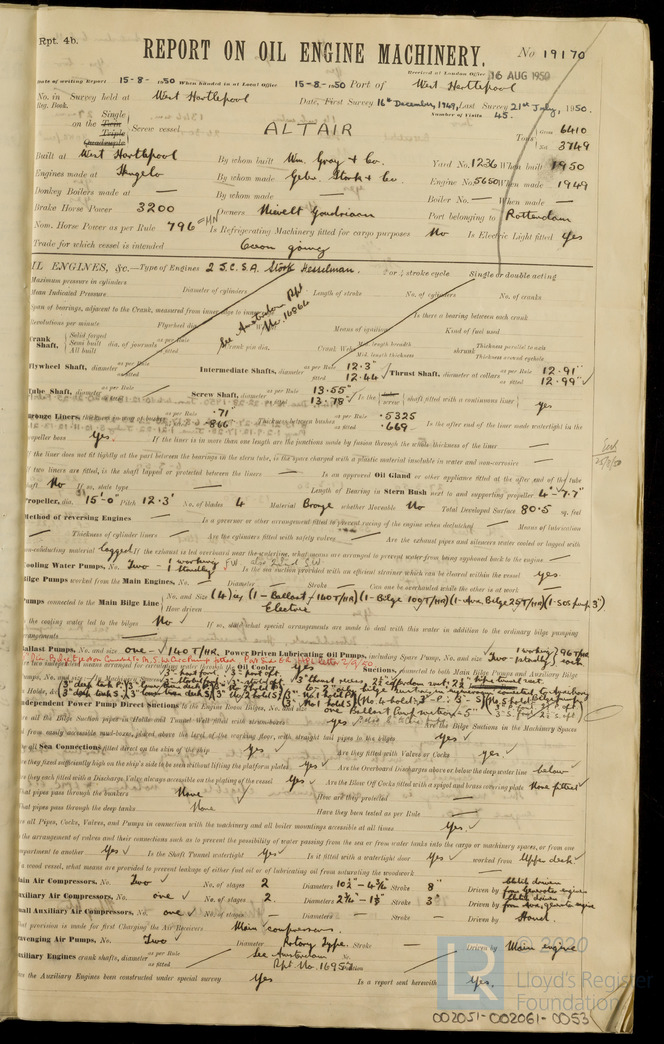 Rpt. 4b.
REPORT ON OIL ENGINE MACHINERY.
No 19170
Received at London Office 16 AUG 1950
Date of writing Report 15-8-1950 When handed in at Local Office 15-8-1950 Port of West Hartlepool
No. in Survey held at West Hartlepool Date, First Survey 16th December, 1949, Last Survey 21st July, 1950.
Reg. Book. Number of Visits 45.
on the Single Twin Triple Quadruple Screw vessel ALTAIR Tons Gross 6410 Net 3749
Built at West Hartlepool By whom built Wm. Gray & Co. Yard No. 1236 When built 1950
Engines made at Hengelo By whom made Gebr. Stork & Co. Engine No. 5650 When made 1949
Donkey Boilers made at — By whom made — Boiler No. — When made —
Brake Horse Power 3200 Owners Port belonging to Rotterdam
Nom. Horse Power as per Rule 796 = MN Is Refrigerating Machinery fitted for cargo purposes No Is Electric Light fitted Yes
Trade for which vessel is intended Ocean going
OIL ENGINES, &c.—Type of Engines 2 S.C.S.A. Stork Hesselman. 2 or 4 stroke cycle Single or double acting
Maximum pressure in cylinders Diameter of cylinders Length of stroke No. of cylinders No. of cranks
Mean Indicated Pressure
Span of bearings, adjacent to the Crank, measured from inner edge to inner edge Is there a bearing between each crank
Revolutions per minute Flywheel dia. Means of ignition Kind of fuel used
See Amsterdam Rpt No. 16866
Crank Shaft, Solid forged Semi built All built dia. of journals as per Rule as fitted Crank pin dia. Crank Webs Mid. length breadth Mid. length thickness shrunk Thickness parallel to axis Thickness around eyehole
Flywheel Shaft, diameter as per Rule as fitted Intermediate Shafts, diameter as per Rule 12.3" as fitted 12.44" Thrust Shaft, diameter at collars as per Rule 12.91" as fitted 12.99"
Tube Shaft, diameter as per Rule as fitted Screw Shaft, diameter as per Rule 13.55" as fitted 13.78" Is the tube screw shaft fitted with a continuous liner yes
Bronze Liners, thickness in way of bushes as per Rule .71 as fitted .866 Thickness between bushes as per Rule .5325 as fitted .669 Is the after end of the liner made watertight in the
propeller boss Yes. If the liner is in more than one length are the junctions made by fusion through the whole thickness of the liner —
If the liner does not fit tightly at the part between the bearings in the stern tube, is the space charged with a plastic material insoluble in water and non-corrosive —
If two liners are fitted, is the shaft lapped or protected between the liners — Is an approved Oil Gland or other appliance fitted at the after end of the tube
shaft No If so, state type — Length of Bearing in Stern Bush next to and supporting propeller 4'-7.7"
Propeller, dia. 15'-0" Pitch 12.3' No. of blades 4 Material Bronze whether Moveable No Total Developed Surface 80.5 sq. feet
Method of reversing Engines — Is a governor or other arrangement fitted to prevent racing of the engine when declutched — Means of lubrication
— Thickness of cylinder liners — Are the cylinders fitted with safety valves — Are the exhaust pipes and silencers water cooled or lagged with
non-conducting material lagged If the exhaust is led overboard near the waterline, what means are arranged to prevent water from being syphoned back to the engine —
Cooling Water Pumps, No. Two - 1 working 1 standby F.W. Is the sea suction provided with an efficient strainer which can be cleared within the vessel yes
Bilge Pumps worked from the Main Engines, No. — Diameter — Stroke — Can one be overhauled while the other is at work —
Pumps connected to the Main Bilge Line No. and Size (4) as (1-Ballast/140 T/HR) (1-Bilge 100 T/HR) (1-Aux. Bilge 25 T/HR)
How driven Electric
Is the cooling water led to the bilges No If so, what special arrangements are made to deal with this water in addition to the ordinary bilge pumping
arrangements —
Ballast Pumps, No. and size one - 140 T/HR. Power Driven Lubricating Oil Pumps, including Spare Pump, No. and size Two 1 working 1 standby 96 T/HR each
Are two independent means arranged for circulating water through the Oil Cooler Yes Suctions, connected to both Main Bilge Pumps and Auxiliary Bilge
Independent Power Pump Direct Suctions to the Engine Room Bilges, No. and size
Are all the Bilge Suction pipes in Holds and Tunnel Well fitted with strum-boxes yes Are the Bilge Suctions in the Machinery Spaces
from easily accessible mud-boxes, placed above the level of the working floor, with straight tail pipes to the bilges yes
Are all Sea Connections fitted direct on the skin of the ship Yes Are they fitted with Valves or Cocks yes.
Are they fixed sufficiently high on the ship's side to be seen without lifting the platform plates Yes Are the Overboard Discharges above or below the deep water line below
Are they each fitted with a Discharge Valve always accessible on the plating of the vessel Yes Are the Blow Off Cocks fitted with a spigot and brass covering plate None fitted
What pipes pass through the bunkers None How are they protected —
What pipes pass through the deep tanks None Have they been tested as per Rule —
Are all Pipes, Cocks, Valves, and Pumps in connection with the machinery and all boiler mountings accessible at all times Yes.
Is the arrangement of valves and their connections such as to prevent the possibility of water passing from the sea or from water tanks into the cargo or machinery spaces, or from one
compartment to another Yes Is the Shaft Tunnel watertight Yes Is it fitted with a watertight door Yes worked from Upper deck
If a wood vessel, what means are provided to prevent leakage of either fuel oil or lubricating oil from saturating the woodwork —
Main Air Compressors, No. Two No. of stages 2 Diameters Stroke 8" Driven by
Auxiliary Air Compressors, No. one No. of stages 2. Diameters Stroke 3" Driven by
Small Auxiliary Air Compressors, No. one No. of stages — Diameters — Stroke — Driven by Hand.
What provision is made for first Charging the Air Receivers Main compressors.
Scavenging Air Pumps, No. Two Diameter Rotary Type. Stroke — Driven by Main engine
Auxiliary Engines crank shafts, diameter as per Rule as fitted See Amsterdam Rpt No. No. Position
Have the Auxiliary Engines been constructed under special survey Yes Is a report sent herewith Yes.
© 2020
LR Lloyd's Register Foundation
002051-002061-0053